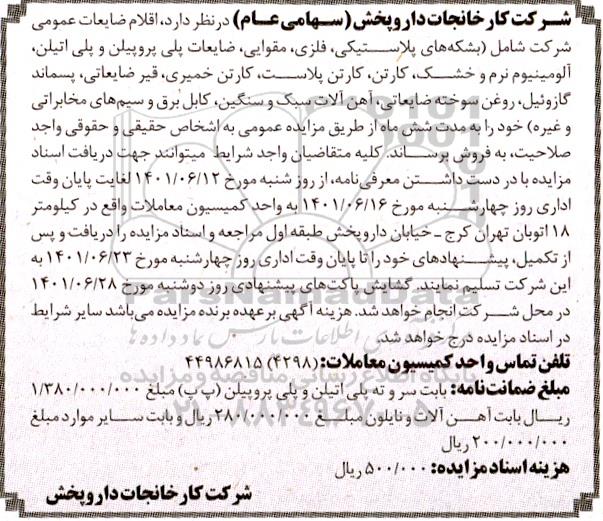 شرکت کارخانجات داروپخش (سهامی عام) در نظر دارد، اقلام ضایعات عمومی
شرکت شامل (بشکه‌های پلاستیکی، فلزی، مقوایی، ضایعات پلی پروپیلن و پلی اتیلن،
آلومینیوم نرم و خشک، کارتن، کارتن پلاست، کارتن خمیری، قیر ضایعاتی، پسماند
گازوئیل، روغن سوخته ضایعاتی، آهن آلات سبک و سنگین، کابل برق و سیم‌های مخابراتی
و غیره) خود را به مدت شش ماه از طریق مزایده عمومی به اشخاص حقیقی و حقوقی واجد
صلاحیت، به فروش برساند. کلیه متقاضیان واجد شرایط میتوانند جهت دریافت اسناد
مزایده با در دست داشتن معرفی‌نامه، از روز شنبه مورخ ۱۴۰۱/۰۶/۱۲ لغایت پایان وقت
اداری روز چهارشنبه مورخ ۱۴۰۱/۰۶/۱۶ به واحد کمیسیون معاملات واقع در کیلومتر
۱۸ اتوبان تهران کرج - خیابان داروپخش طبقه اول مراجعه و اسناد مزایده را دریافت و پس
از تکمیل، پیشنهادهای خود را تا پایان وقت اداری روز چهارشنبه مورخ ۱۴۰۱/۰۶/۲۳ به
این شرکت تسلیم نمایند. گشایش پاکت‌های پیشنهادی روز دوشنبه مورخ ۱۴۰۱/۰۶/۲۸
در محل شرکت انجام خواهد شد. هزینه آگهی بر عهده برنده مزایده می‌باشد سایر شرایط
در اسناد مزایده درج خواهد شد.
تلفن تماس واحد کمیسیون معاملات: (۴۲۹۸) ۴۴۹۸۶۸۱۵
مبلغ ضمانت‌نامه: بابت سر و ته پلی اتیلن و پلی پروپیلن (پ پ) مبلغ ۱/۳۸۰/۰۰۰/۰۰۰
ریال بابت آهن آلات و نایلون مبلغ ۲۸۰/۰۰۰/۰۰۰ ریال و بابت سایر موارد مبلغ
۲۰۰/۰۰۰/۰۰۰ ریال
هزینه اسناد مزایده: ۵۰۰/۰۰۰ ریال
شرکت کارخانجات داروپخش
ParsNamadData